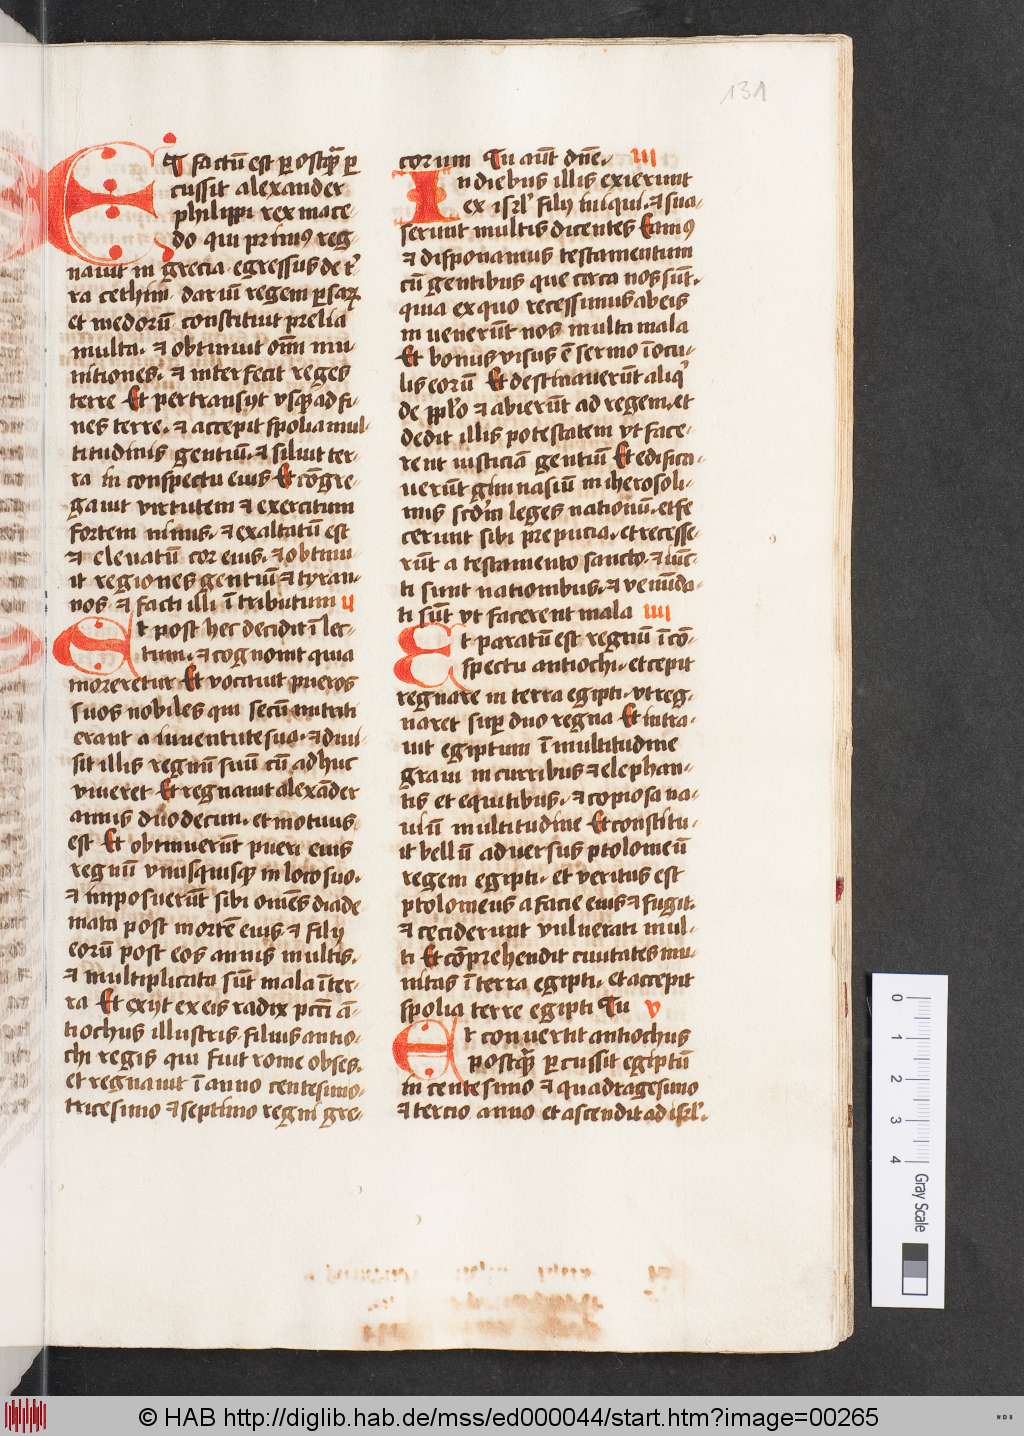 131
Et factū est postqͣ̄ ꝑ
cussit alexander
philippi rex mace-
do qui primꝰ reg-
nauit in grecia. egressus de tr̄
ra cethim. dariū regem ꝑsaꝝ
et medorū constituit prelia
multa. ⁊ obtinuit om̄i mu-
nitiones. ⁊ interfecit reges
terre Et pertransijt vsqꝫ ad fi-
nes terre. ⁊ accepit spolia mul-
titudinis gentiū. ⁊ siluit ter-
ra in conspectu eius Et cōgre-
gauit virtutem ⁊ exercitum
fortem nimis. ⁊ exaltatū est
⁊ eleuatū cor eius. ⁊ obtinu-
it regiones gentiū ⁊ tyran-
nos. ⁊ facti illi ī tributum ij
Et post hec decidit ī lec-
tum. ⁊ cognouit quia
moreretur Et vocauit pueros
suos nobiles qui secū nutriti
erant a iuuentute sua. ⁊ diui-
sit illis regnū suū cū adhuc
viueret Et regnauit alexāder
annis duodecim. et motuus
est Et obtinuerūt pueri eius
regnū vnusquisqꝫ in loco suo.
⁊ imposuerūt sibi omēs diade
mata post mortē eius. ⁊ filij
eorū post eos annis multis.
⁊ multiplicata sūt mala ī ter-
ra Et exijt ex eis radix pctī ā-
tiochus illustris. filius antio-
chi regis qui fuit rome obses.
et regnauit ī anno centesimo-
tricesimo ⁊ septimo regni gre-
corum Tu aūt dn̄e. iii
In diebus illis exierunt
ex isrl' filij iniqui. ⁊ sua-
serunt multis dicentes Eamꝰ
⁊ disponamus testamentum
cū gentibus que circa nos sūt.
quia ex quo recessimus ab eis
inuenerūt nos multa mala
Et bonus visus ē sermo ī ocu-
lis eorū Et destinauerūt aliq'
de ppl'o ⁊ abierūt ad regem. et
dedit illis potestatem vt face-
rent iusticiā gentiū Et edifica-
uerūt gimnasiū in iherosoli-
mis scdm̄ leges nationū. et fe
cerunt sibi prepucia. et recesse-
rūt a testamento sancto. ⁊ iūc-
ti sunt nationibus. ⁊ venūda-
ti sūt vt facerent mala iiii
Et paratū est regnū ī cō-
spectu antiochi. et cepit
regnare in terra egipti. vt reg-
naret suꝑ duo regna Et intra-
uit egiptum ī multitudine
graui in curribus ⁊ elephan-
tis et equitibus. ⁊ copiosa na-
uiū multitudine Et constitu-
it bellū aduersus ptolomeū
regem egipti. et veritus est
ptolomeus a facie eius ⁊ fugit.
⁊ ceciderunt vulnerati mul-
ti Et cōprehendit ciuitates mu-
nitas ī terra egipti. et accepit
spolia terre egipti Tu v
Et conuertit antiochus
postqͣ̄ ꝑcussit egiptū
in centesimo ⁊ quadragesimo
⁊ tercio anno et ascendit ad isrl'.
0
1
2
3
4
Gray Scale
© HAB http://diglib.hab.de/mss/ed000044/start.htm?image=00265